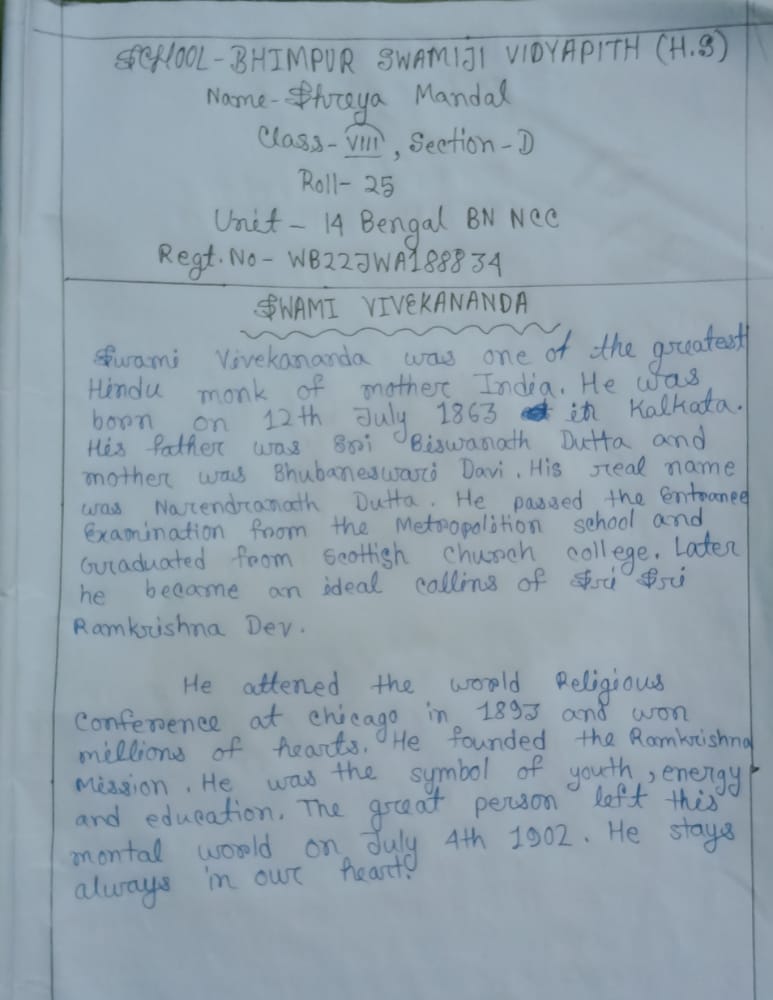 SCHOOL-BHIMPUR SWAMIJI VIDYAPITH (H.S)
Name-Shreya Mandal
Class-VIII, Section-D
Roll-25
Unit-14 Bengal BN NCC
Regt.No-WB22JWA188834
SWAMI VIVEKANANDA
Swami Vivekananda was one of the greatest
Hindu monk of mother India. He was
born on 12th July 1863 in Kalkata.
His father was Sri Biswanath Dutta and
mother was Bhubaneswari Davi. His real name
was Narendranath Dutta. He passed the Entrance
Examination from the Metropolition school and
Graduated from Scottish church college. Later
he became an ideal collins of Sri Sri
Ramkrishna Dev.
He attened the world Religious
Conference at chicago in 1893 and won
millions of hearts. He founded the Ramkrishna
Mission. He was the symbol of youth, energy
and education. The great person left this
mortal world on July 4th 1902. He stays
always in our heart.